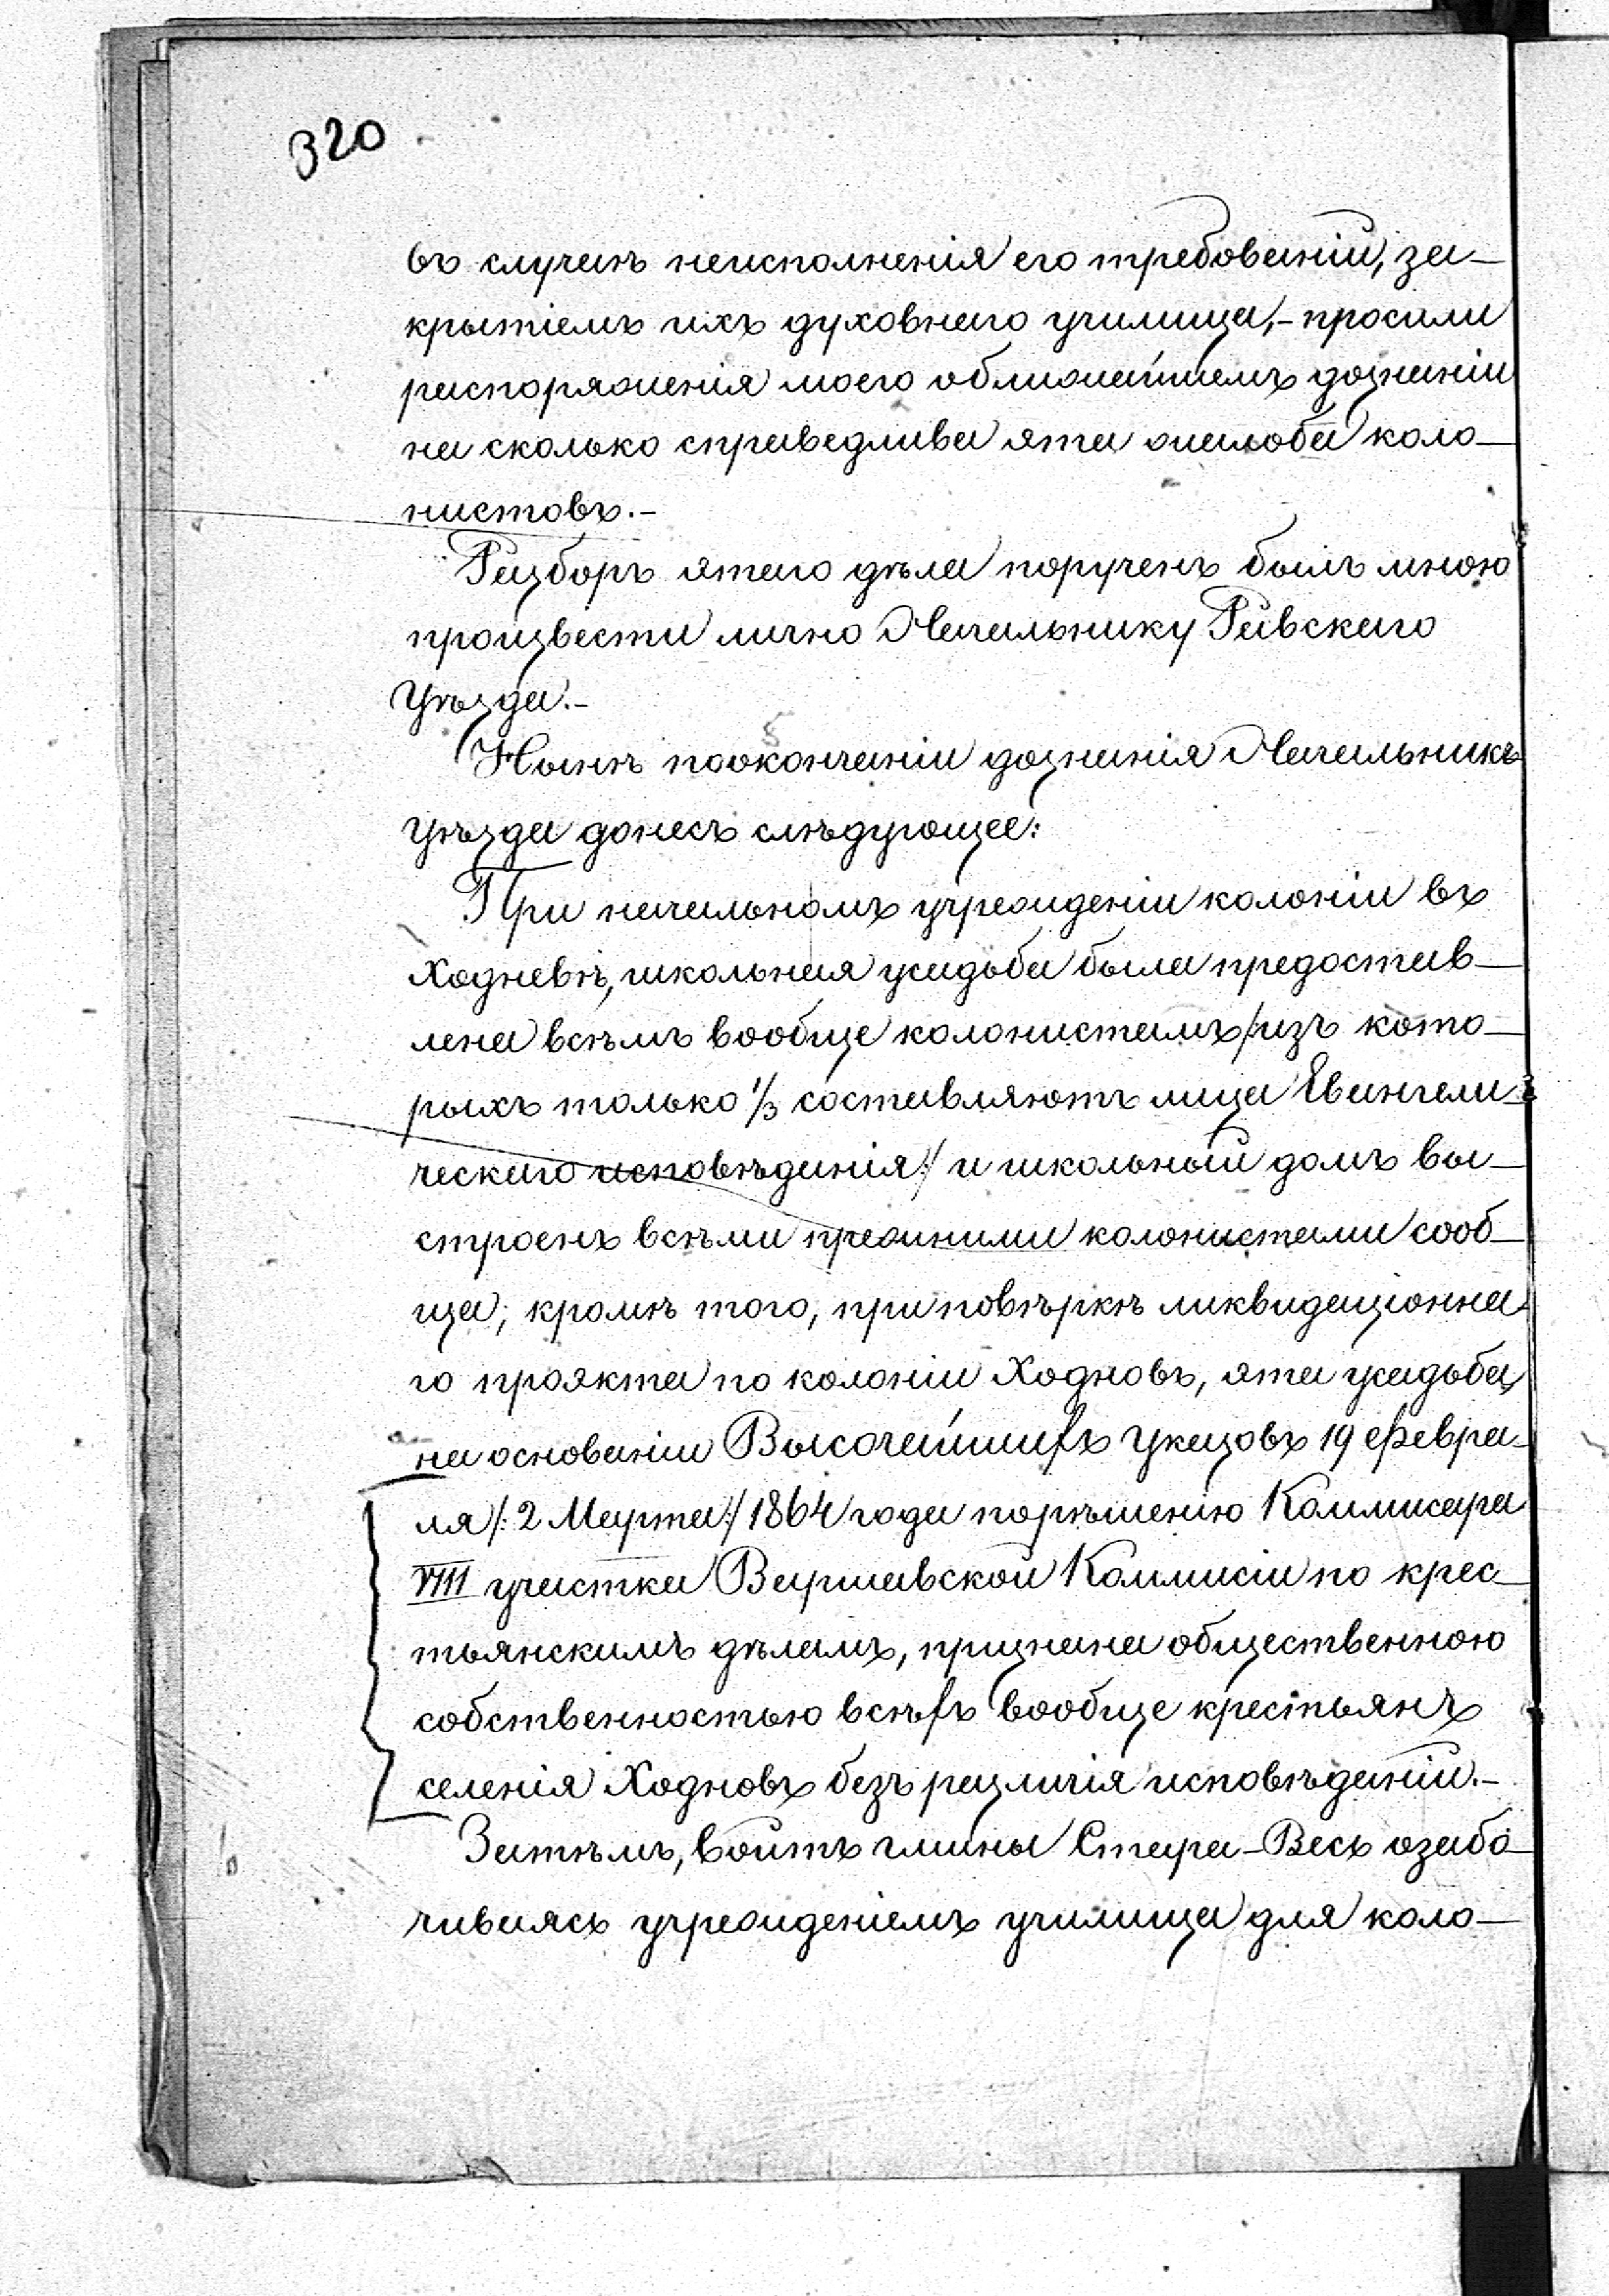 320
въ случаѣ неисполненія его требованій, за-
крытіемъ ихъ духовнаго училища,- просили
распоряженія моего о ближайшемъ дознаніи
на сколько справедлива эта жалоба коло-
нистовъ.-
Разборъ этаго дѣла порученъ былъ мною
произвести лично Начальнику Равскаго
Уѣзда.-
Нынѣ по окончаніи дознанія Начальникъ
уѣзда донесъ слѣдующее:
При начальномъ учрежденіи колоніи въ
Ходневѣ, школьная усадьба была предостав-
лена всѣмъ вообще колонистамъ /изъ кото-
рыхъ только 1/3 составляютъ лица Евангели-
ческаго исповѣданія:/ и школьный домъ вы-
строенъ всѣми прежними колонистами сооб-
ща; кромѣ того, при повѣркѣ ликвидаціонна-
го проэкта по колоніи Ходновъ, эта усадьба,
на основаніи Высочайшихъ Указовъ 19 Февра-
ля /:2 Марта:/ 1864 года по рѣшенію Коммисара
VIII участка Варшавской Коммисіи по крес-
тьянскимъ дѣламъ, признана общественною
собственностью всѣхъ вообще крестьянъ
селенія Ходновъ безъ различія исповѣданій.-
Затѣмъ, войтъ гмины Стара-Весь озабо-
чиваясь учрежденіемъ училища для коло-